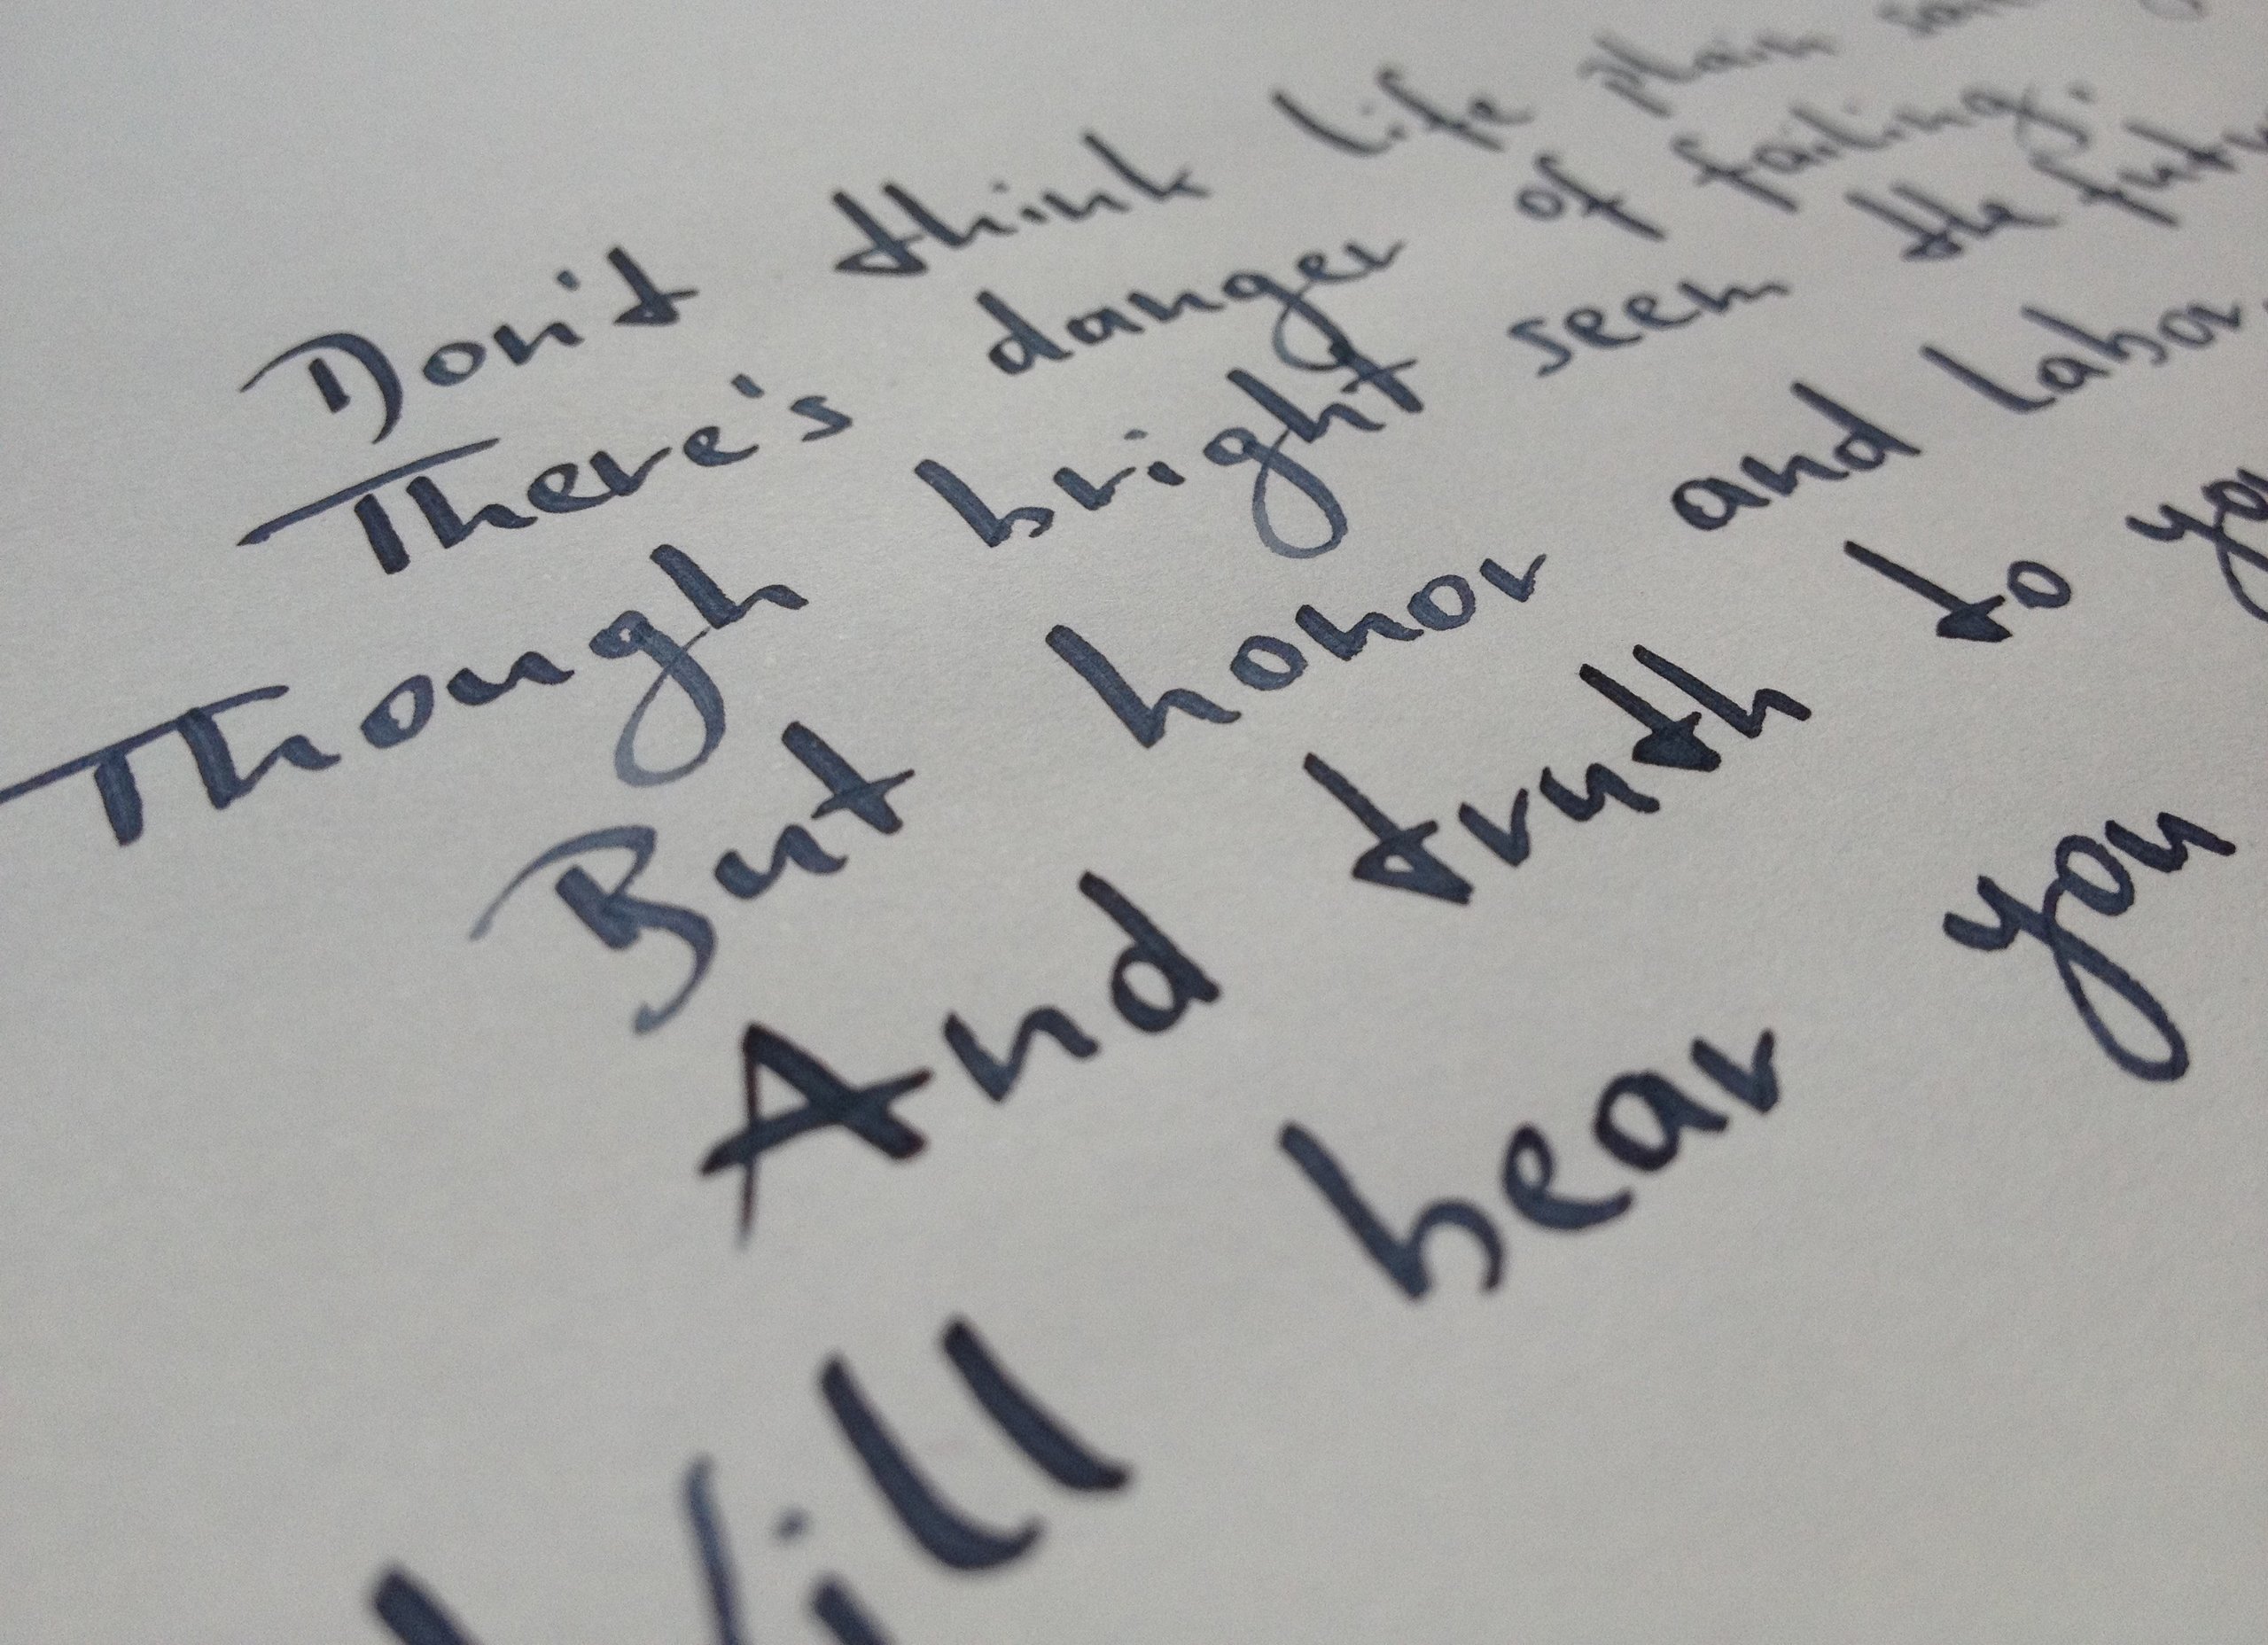 Don't think life plain
There's danger of failing.
Though bright seem the
But honor and labor
And truth to
Will bear you